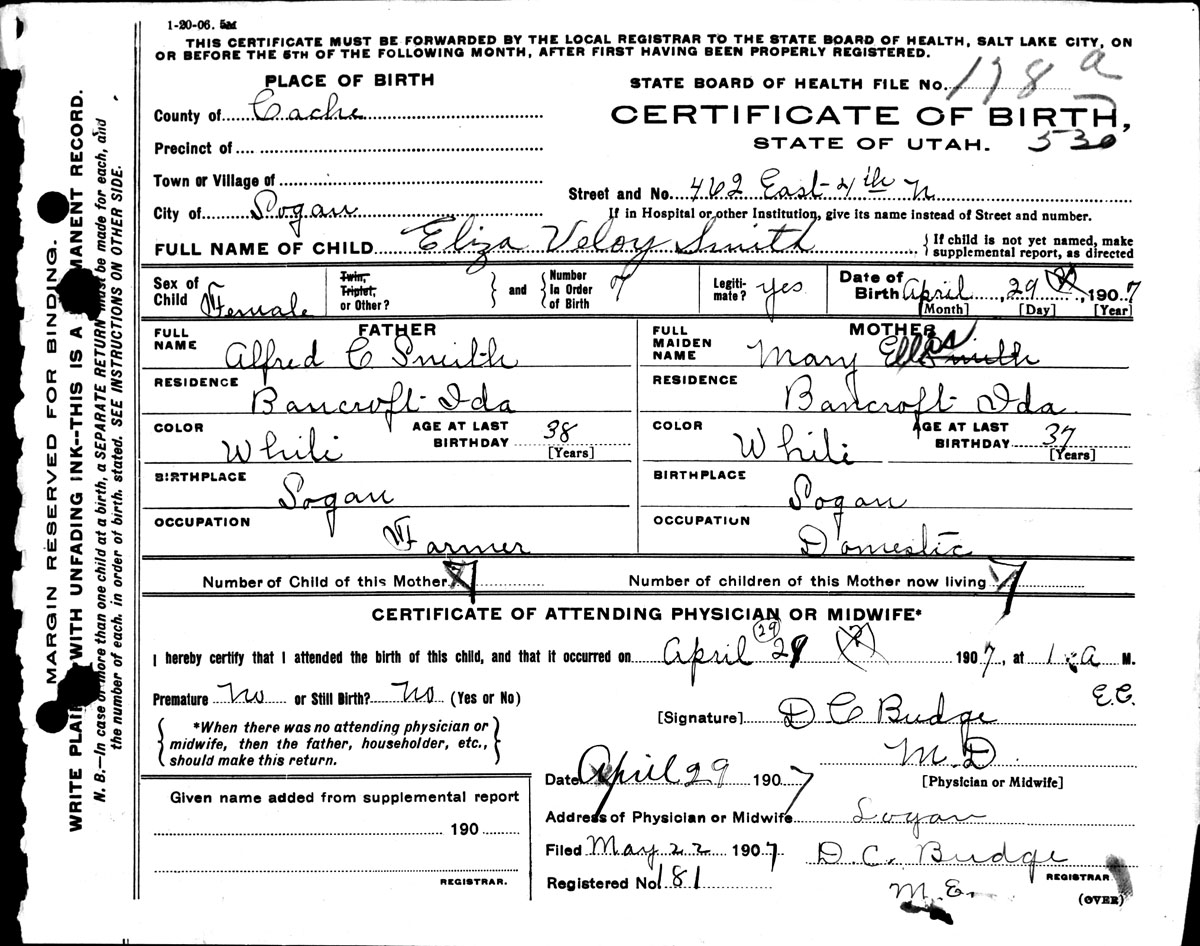 1-20-06. 5M
THIS CERTIFICATE MUST BE FORWARDED BY THE LOCAL REGISTRAR TO THE STATE BOARD OF HEALTH, SALT LAKE CITY, ON
OR BEFORE THE 5TH OF THE FOLLOWING MONTH, AFTER FIRST HAVING BEEN PROPERLY REGISTERED.
PLACE OF BIRTH
STATE BOARD OF HEALTH FILE No. 178 a
County of Cache
CERTIFICATE OF BIRTH,
Precinct of
STATE OF UTAH. 530
Town or Village of
Street and No. 462 East 4th N
City of Logan
If in Hospital or other Institution, give its name instead of Street and number.
FULL NAME OF CHILD Eliza Veloy Smith
{ If child is not yet named, make
supplemental report, as directed
Sex of Child Female
Twin, Triplet, or Other? } and { Number In Order of Birth 7
Legitimate? yes
Date of Birth April, 29, 1907
[Month] [Day] [Year]
FATHER
FULL NAME Alfred C Smith
RESIDENCE Bancroft Ida
COLOR White
AGE AT LAST BIRTHDAY 38 [Years]
BIRTHPLACE Logan
OCCUPATION Farmer
MOTHER
FULL MAIDEN NAME Mary Ellis Smith
RESIDENCE Bancroft Ida
COLOR White
AGE AT LAST BIRTHDAY 37 [Years]
BIRTHPLACE Logan
OCCUPATION Domestic
Number of Child of this Mother 7
Number of children of this Mother now living 7
CERTIFICATE OF ATTENDING PHYSICIAN OR MIDWIFE*
29
I hereby certify that I attended the birth of this child, and that it occurred on April 29 (?) 1907, at 1 A M.
Premature No or Still Birth? No (Yes or No)
E.C.
[Signature] D C Budge
M.D
[Physician or Midwife]
{ *When there was no attending physician or
midwife, then the father, householder, etc.,
should make this return. }
Date April 29 1907
Given name added from supplemental report
190
REGISTRAR.
Address of Physician or Midwife Logan
Filed May 22 1907 D. C. Budge
REGISTRAR
Registered No 181 M.E.
(OVER)
MARGIN RESERVED FOR BINDING.
WRITE PLAINLY WITH UNFADING INK--THIS IS A PERMANENT RECORD.
N. B.—In case of more than one child at a birth, a SEPARATE RETURN must be made for each, and
the number of each, in order of birth, stated. SEE INSTRUCTIONS ON OTHER SIDE.